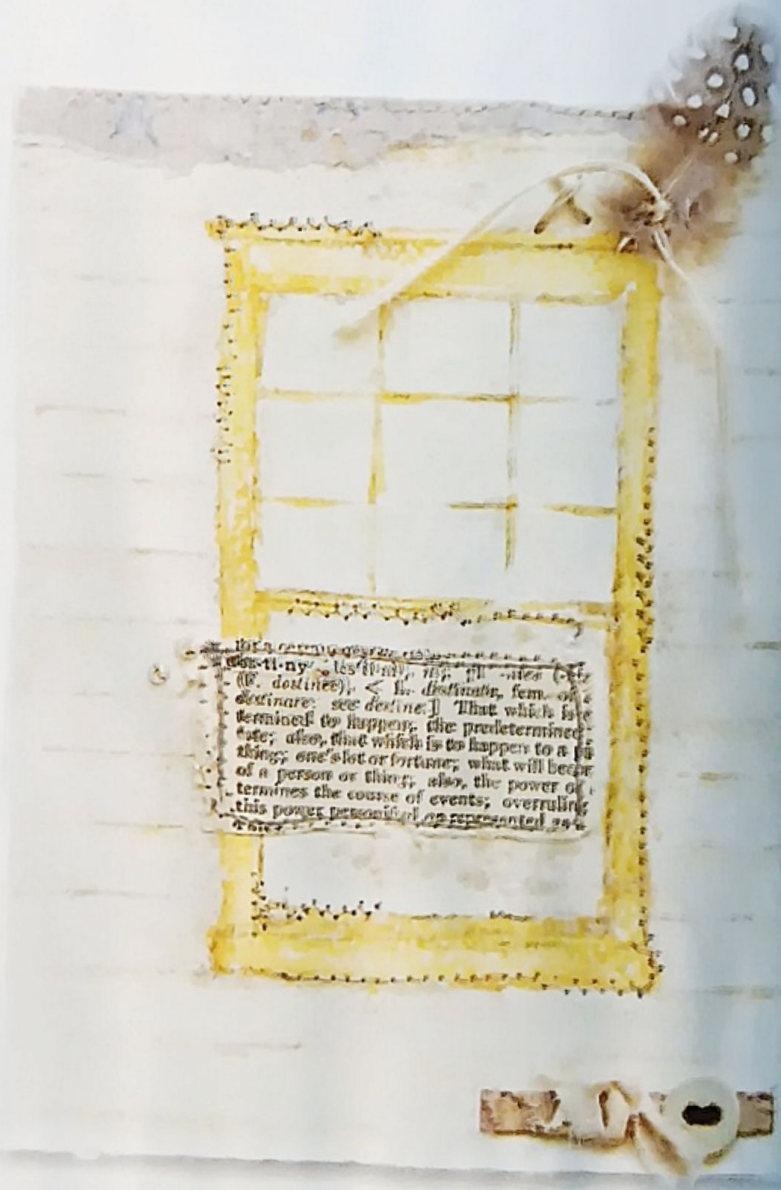 des·ti·ny
(F. destinée), < L. destinata, fem. of
destinare: see destine.] That which is
termined to happen; the predetermined
fate; also, that which is to happen to a
thing; one's lot or fortune; what will
of a person or thing; also, the power
termines the course of events; overruling
this power personified or represented